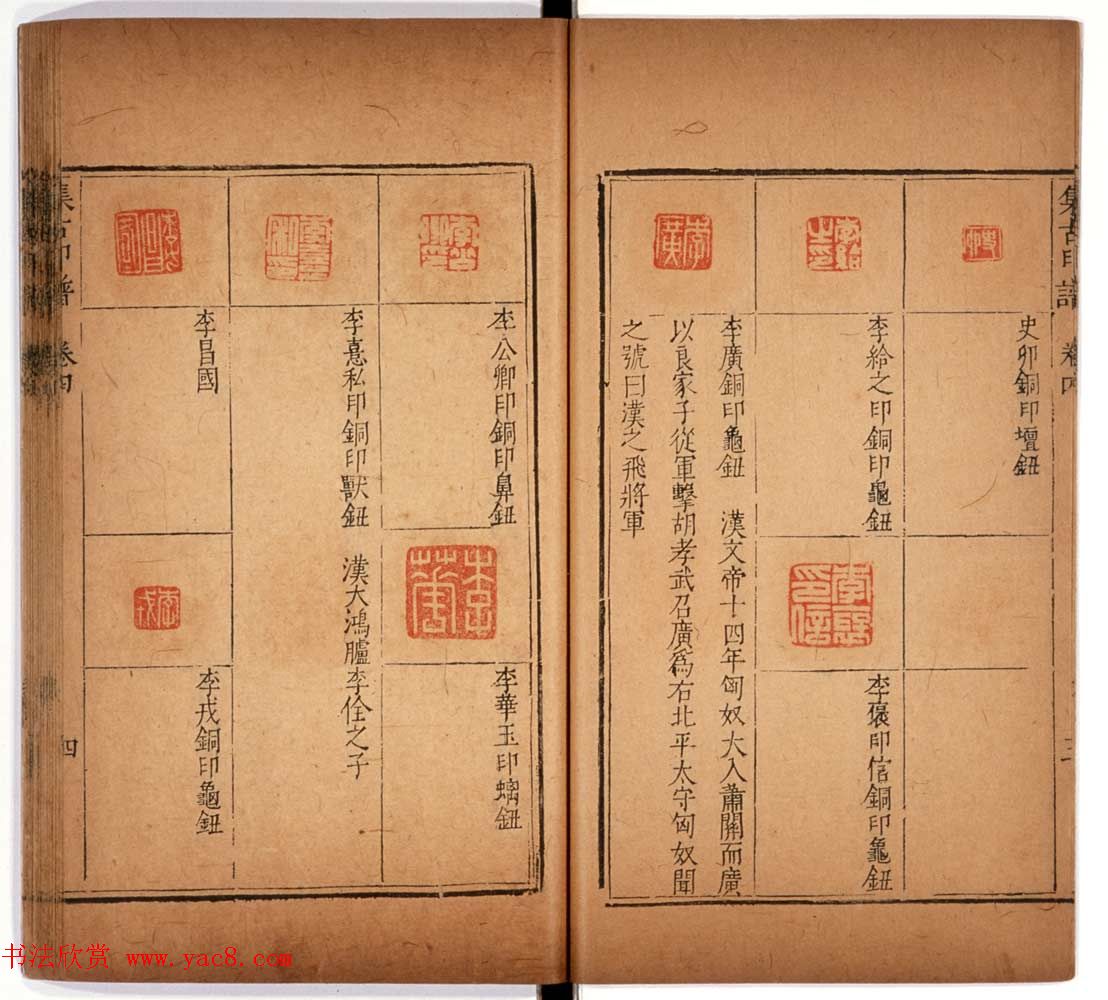 集古印譜 卷四
三
史卯銅印壇鈕
李給之印銅印龜鈕
李褒印信銅印龜鈕
李廣銅印龜鈕 漢文帝十四年匈奴大入蕭關而廣
以良家子從軍擊胡孝武召廣為右北平太守匈奴聞
之號曰漢之飛將軍
李公卿印銅印鼻鈕
李華玉印螭鈕
李憙私印銅印獸鈕 漢大鴻臚李佺之子
李昌國
李戎銅印龜鈕
集古印譜 卷四
四
书法欣赏 www.yac8.com